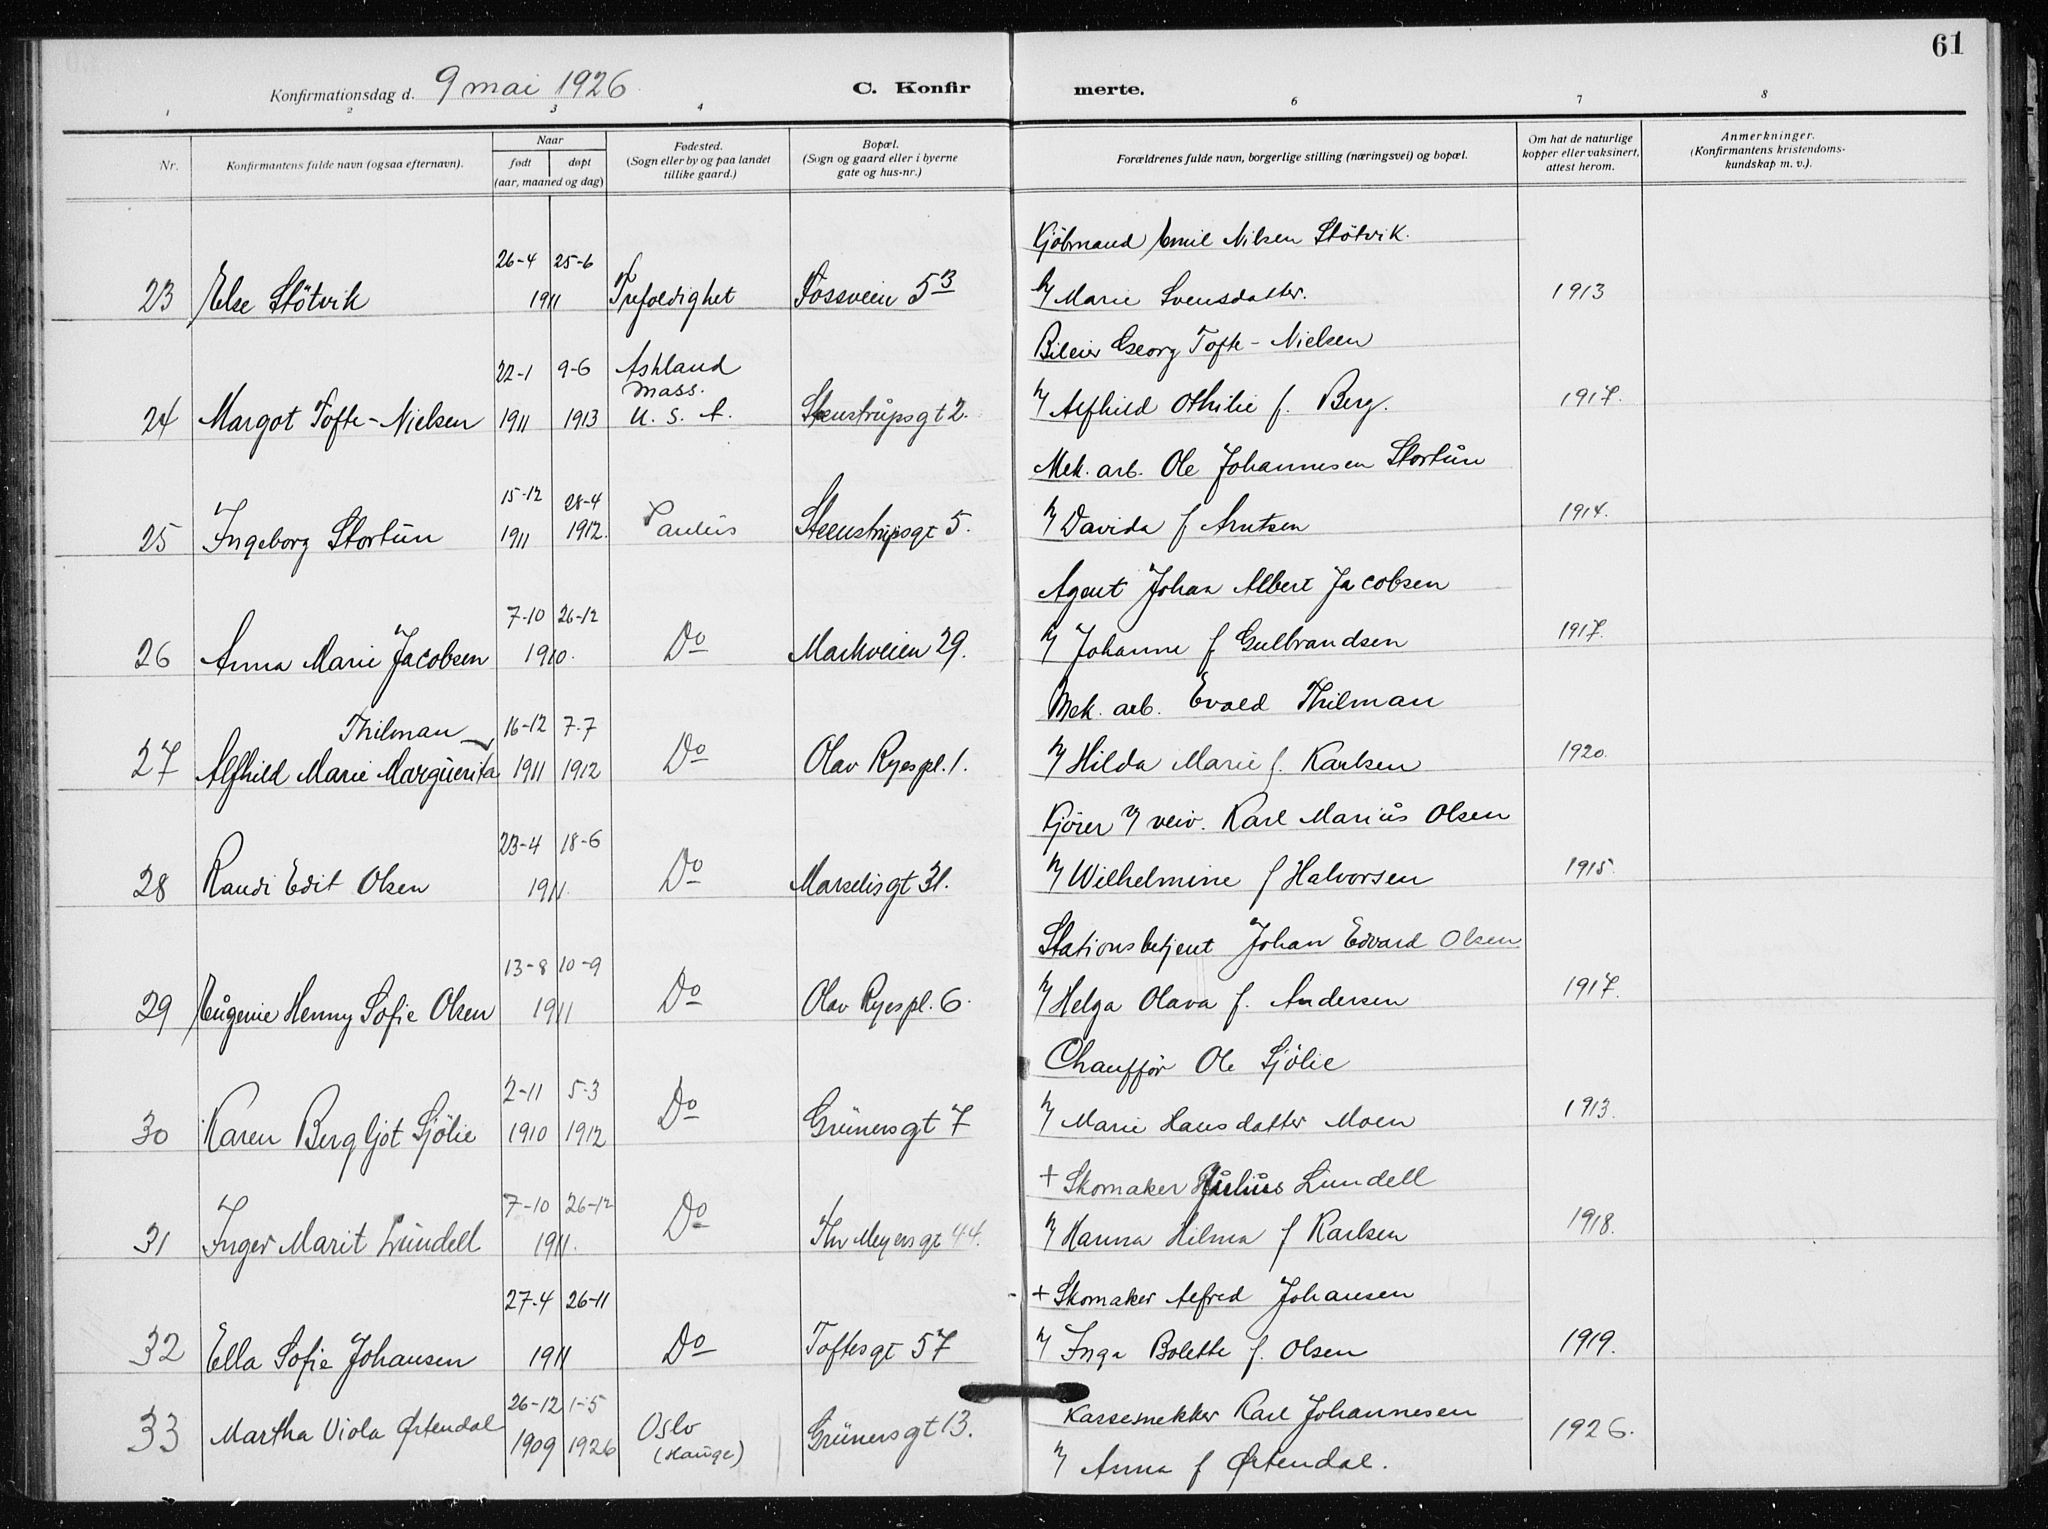 61
Konfirmationsdag d. 9 mai 1926. C. Konfirmerte.
1 2 3 4 6 7 8
Nr. Konfirmantens fulde navn (ogsaa efternavn). Naar født døpt (aar, maaned og dag) Fødested. (Sogn eller by og paa landet tillike gaard.) Bopæl. (Sogn og gaard eller i byerne gate og hus-nr.) Forældrenes fulde navn, borgerlige stilling (næringsvei) og bopæl. Om hat de naturlige kopper eller vaksinert, attest herom. Anmerkninger. (Konfirmantens kristendomskundskap m. v.).
Kjöbmand Emil Nilsen Stötvik.
26-4 25-6
23 Else Stötvik 1911 Trefoldighet Fossveien 5 3 Marie Svensdatter. 1913
Bileier Georg Tofte-Nielsen
22-1 9-6 Ashland
Mass.
24 Margot Tofte-Nielsen 1911 1913 U. S. A. Steenstrupsgt 2. Alfhild Othilie f. Berg. 1917.
Mek. arb. Ole Johannesen Stortun
15-12 28-4
25 Ingeborg Stortun 1911 1912. Paulus Steenstrupsgt 5. Davida f Arntsen 1914.
Agent Johan Albert Jacobsen
7-10 26-12
26 Anna Marie Jacobsen 1910. Do Markveien 29. Johanne f Gulbrandsen 1917.
Mek. arb. Evald Thilman
Thilman 16-12 7-7
27 Alfhild Marie Marguerita 1911 1912 Do Olav Ryespl. 1. Hilda Marie f. Karlsen 1920.
Kjörer v veiv. Karl Marius Olsen
23-4 18-6
28 Randi Edit Olsen 1911. Do Marselisgt 31. Wilhelmine f Halvorsen 1915.
Stationsbetjent Johan Edvard Olsen
13-8 10-9
29 Eugenie Henny Sofie Olsen 1911 Do Olav Ryespl. 6. Helga Olava f. Andersen 1917.
Chauffør Ole Sjölie
2-11 5-3
30 Karen Bergljot Sjölie 1910 1912 Do Grünersgt 7 Marie Hansdatter Moen 1913.
+ Skomaker Julius Lundell
7-10 26-12
31 Inger Marit Lundell 1911. Do Thv Meyersgt 44. Hanna Hilma f Karlsen 1918.
+ Skomaker Alfred Johansen
27-4 26-11
32 Ella Sofie Johansen 1911 Do Toftesgt 57 Inga Bolette f. Olsen 1919.
Kassesnekker Karl Johannesen
26-12 1-5
33 Martha Viola Østendal 1909 1926 Oslo (Hauge) Grünersgt 13. Anna f Østendal. 1926.